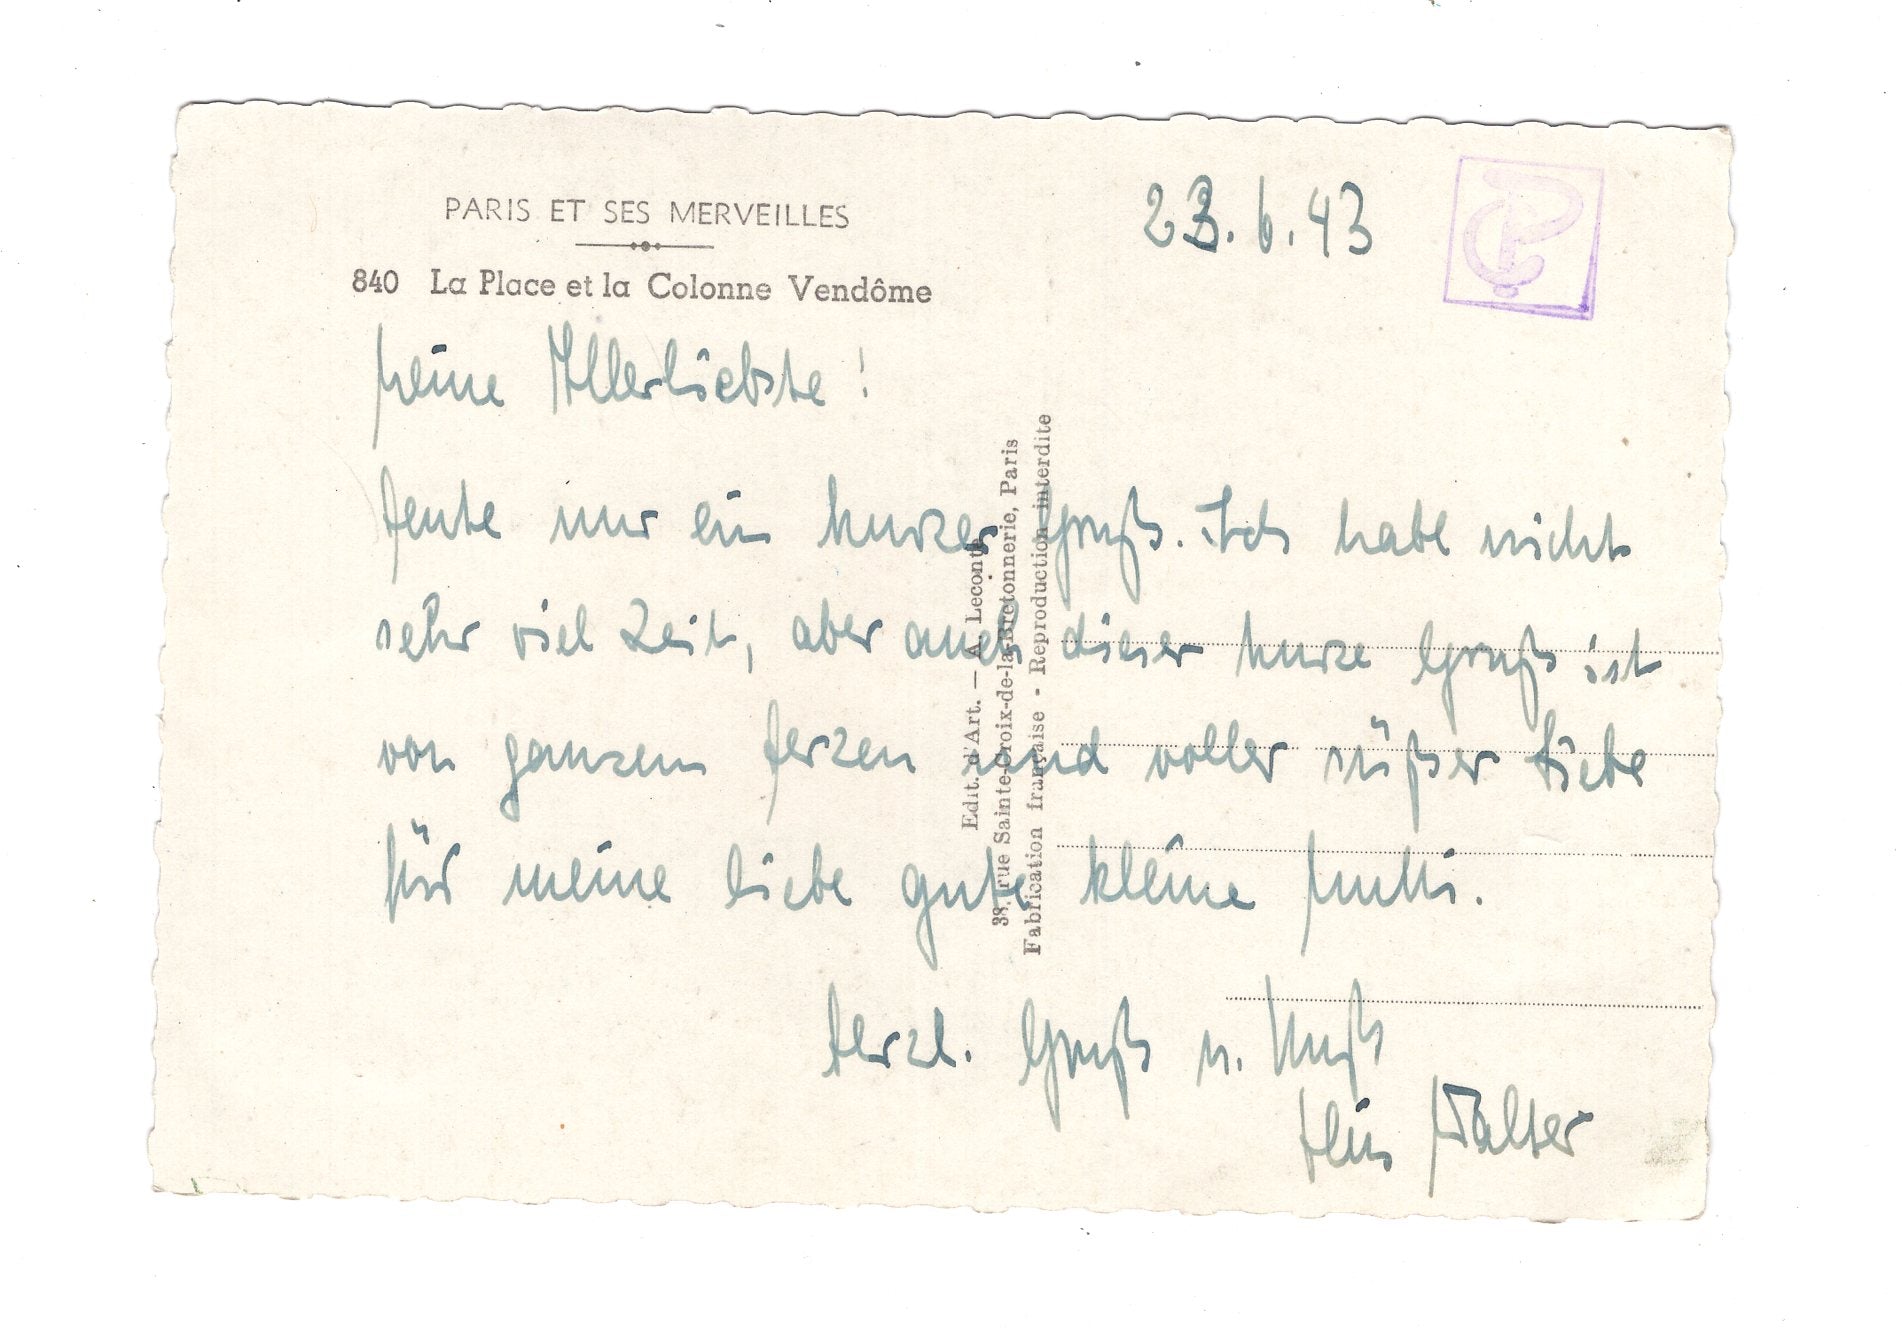 PARIS ET SES MERVEILLES
840 La Place et la Colonne Vendôme
23.6.43
Meine Allerliebste!
Heute nur ein kurzer Gruß. Ich habe nicht
sehr viel Zeit, aber auch dieser kurze Gruß ist
von ganzem Herzen und voller süßer Liebe
für meine liebe gute kleine Mutti.
Herzl. Gruß u. Kuß
Dein Walter
Edit. d'Art. — A. Leconte
38, rue Sainte-Croix-de-la-Bretonnerie, Paris
Fabrication française - Reproduction interdite